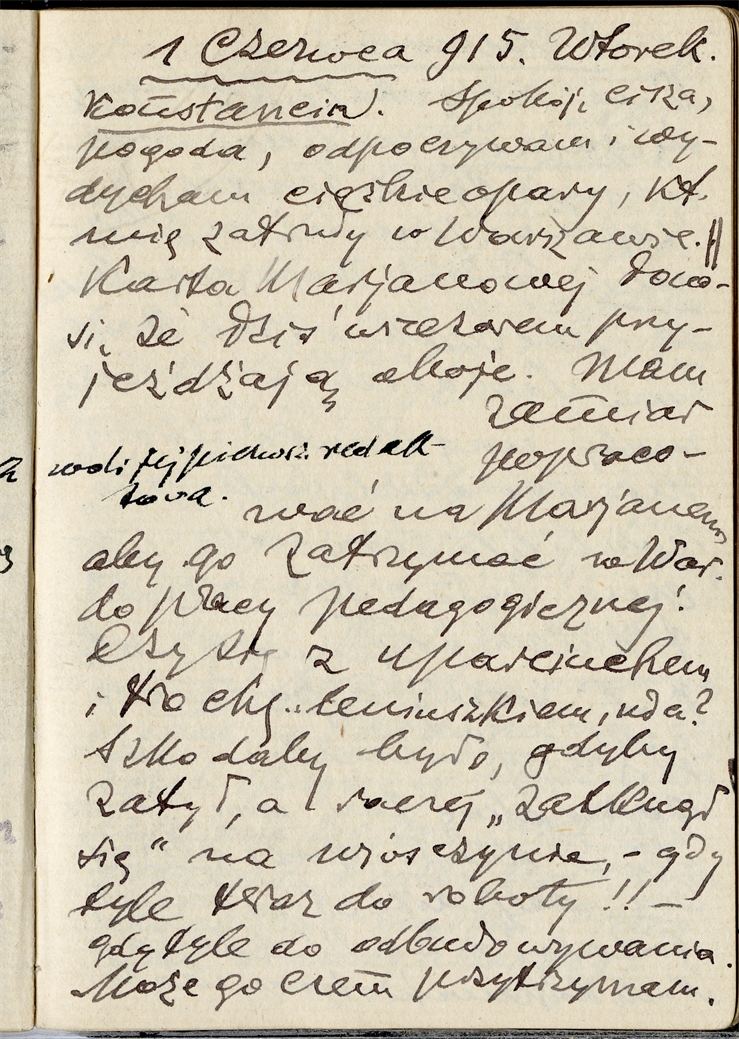 1 Czerwca 915. Wtorek.
Konstancin. Spokój, cisza,
pogoda, odpoczywam i wy-
dycham ciężkie opary, kt.
mię zatruły w Warszawie.
Karta Marjanowej dono-
si, że dziś wieczorem przy-
jeżdżają oboje. Mam
zamiar
popraco-
redak-
tora.
wać na Marjanem
aby go zatrzymać w War.
do pracy pedagogicznej.
Czy się z uparciuchem
i trochę leniuszkiem, uda?
Szkodaby było, gdyby
zatył, a raczej
się" na wioszczynie, - gdy
tyle teraz do roboty!! -
gdy tyle do odbudowywania.
Może go czem przytrzymam.